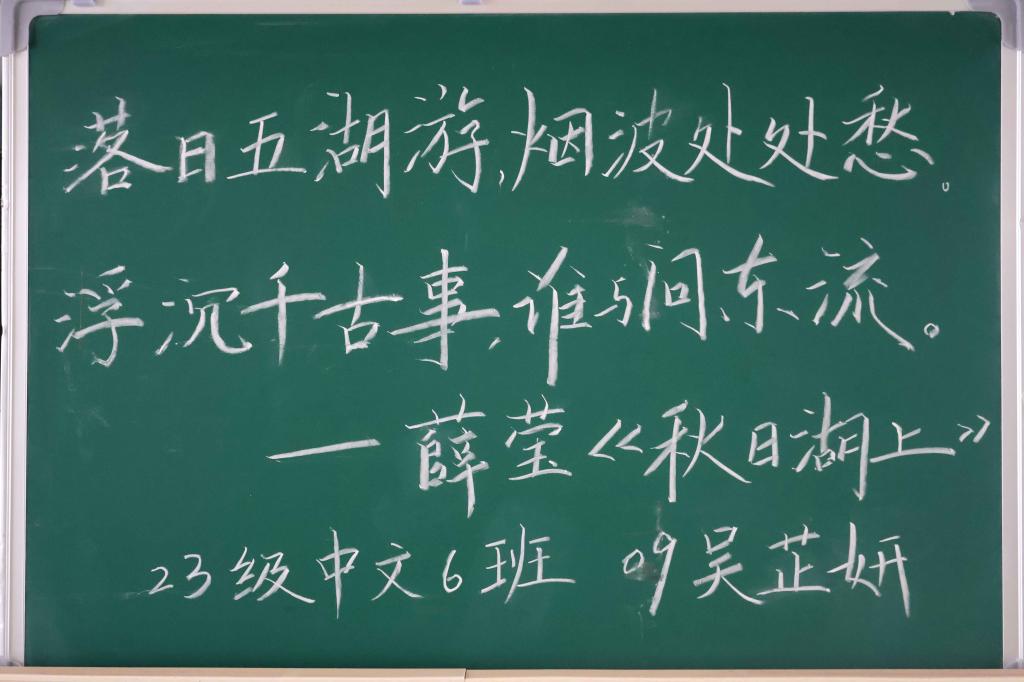 落日五湖游,烟波处处愁。
浮沉千古事,谁与问东流。
—薛莹《秋日湖上》
23级中文6班 09吴芷妍